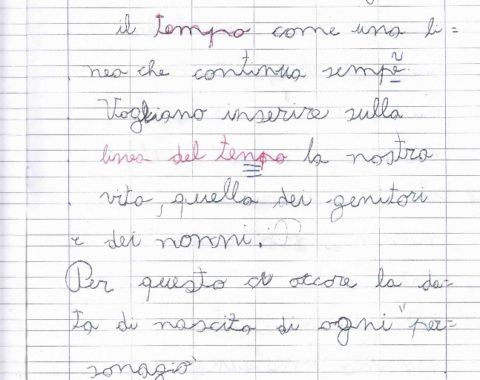 il tempo come una li=
nea che continua sempre
Vogliano inserire sulla
linea del tempo la nostra
vita, quella dei genitori
e dei nonni.
Per questo occore la da=
ta di nascita di ogni "per=
sonagio"